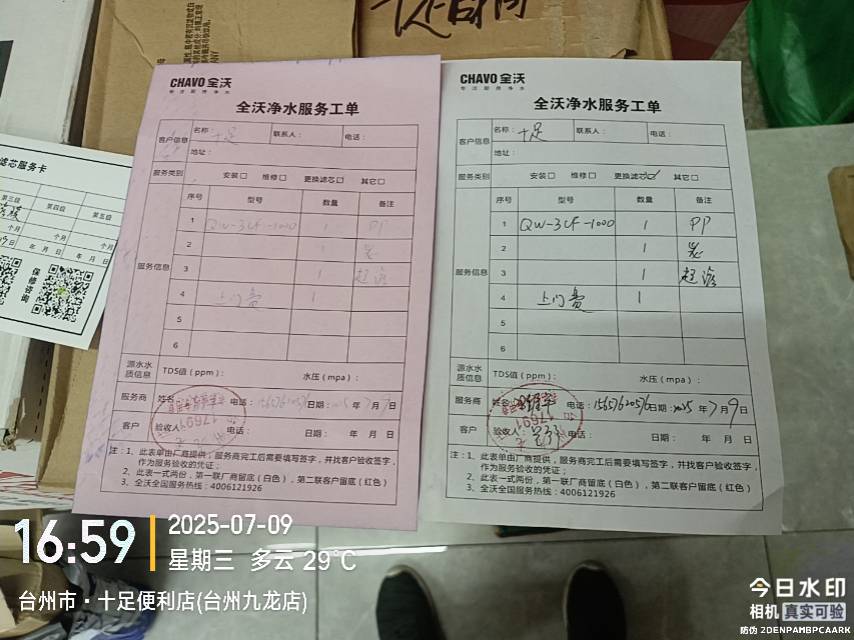 十足百货
滤芯服务卡
第三级 第四级 第五级
个月 个月 个月
年 月 日 年 月 日
保修咨询
CHAVO 全沃
专注厨房净水
全沃净水服务工单
客户信息 名称: 十足 联系人: 电话:
地址:
服务类别 安装□ 维修□ 更换滤芯□ 其它□
服务信息 序号 型号 数量 备注
1 QW-3CF-1000 1 PP
2 1 炭
3 1 超滤
4 上门费 1
5
6
源水水质信息 TDS值(ppm): 水压(mpa):
服务商 姓名: 电话: 15657620576 日期: 2025年7月9日
客户 验收人: 电话: 日期: 年 月 日
注:1、此表单由厂商提供,服务商完工后需要填写签字,并找客户验收签字,
作为服务验收的凭证;
2、此表一式两份,第一联厂商留底(白色),第二联客户留底(红色)
3、全沃全国服务热线:4006121926
CHAVO 全沃
专注厨房净水
全沃净水服务工单
客户信息 名称: 十足 联系人: 电话:
地址:
服务类别 安装□ 维修□ 更换滤芯☑ 其它□
服务信息 序号 型号 数量 备注
1 QW-3CF-1000 1 PP
2 1 炭
3 1 超滤
4 上门费 1
5
6
源水水质信息 TDS值(ppm): 水压(mpa):
服务商 姓名: 电话: 15657620576 日期: 2025年7月9日
客户 验收人: 电话: 日期: 年 月 日
注:1、此表单由厂商提供,服务商完工后需要填写签字,并找客户验收签字,
作为服务验收的凭证;
2、此表一式两份,第一联厂商留底(白色),第二联客户留底(红色)
3、全沃全国服务热线:4006121926
16:59 2025-07-09
星期三 多云 29℃
台州市·十足便利店(台州九龙店)
今日水印
相机 真实可验
防伪 2DENPAMBPCAARK